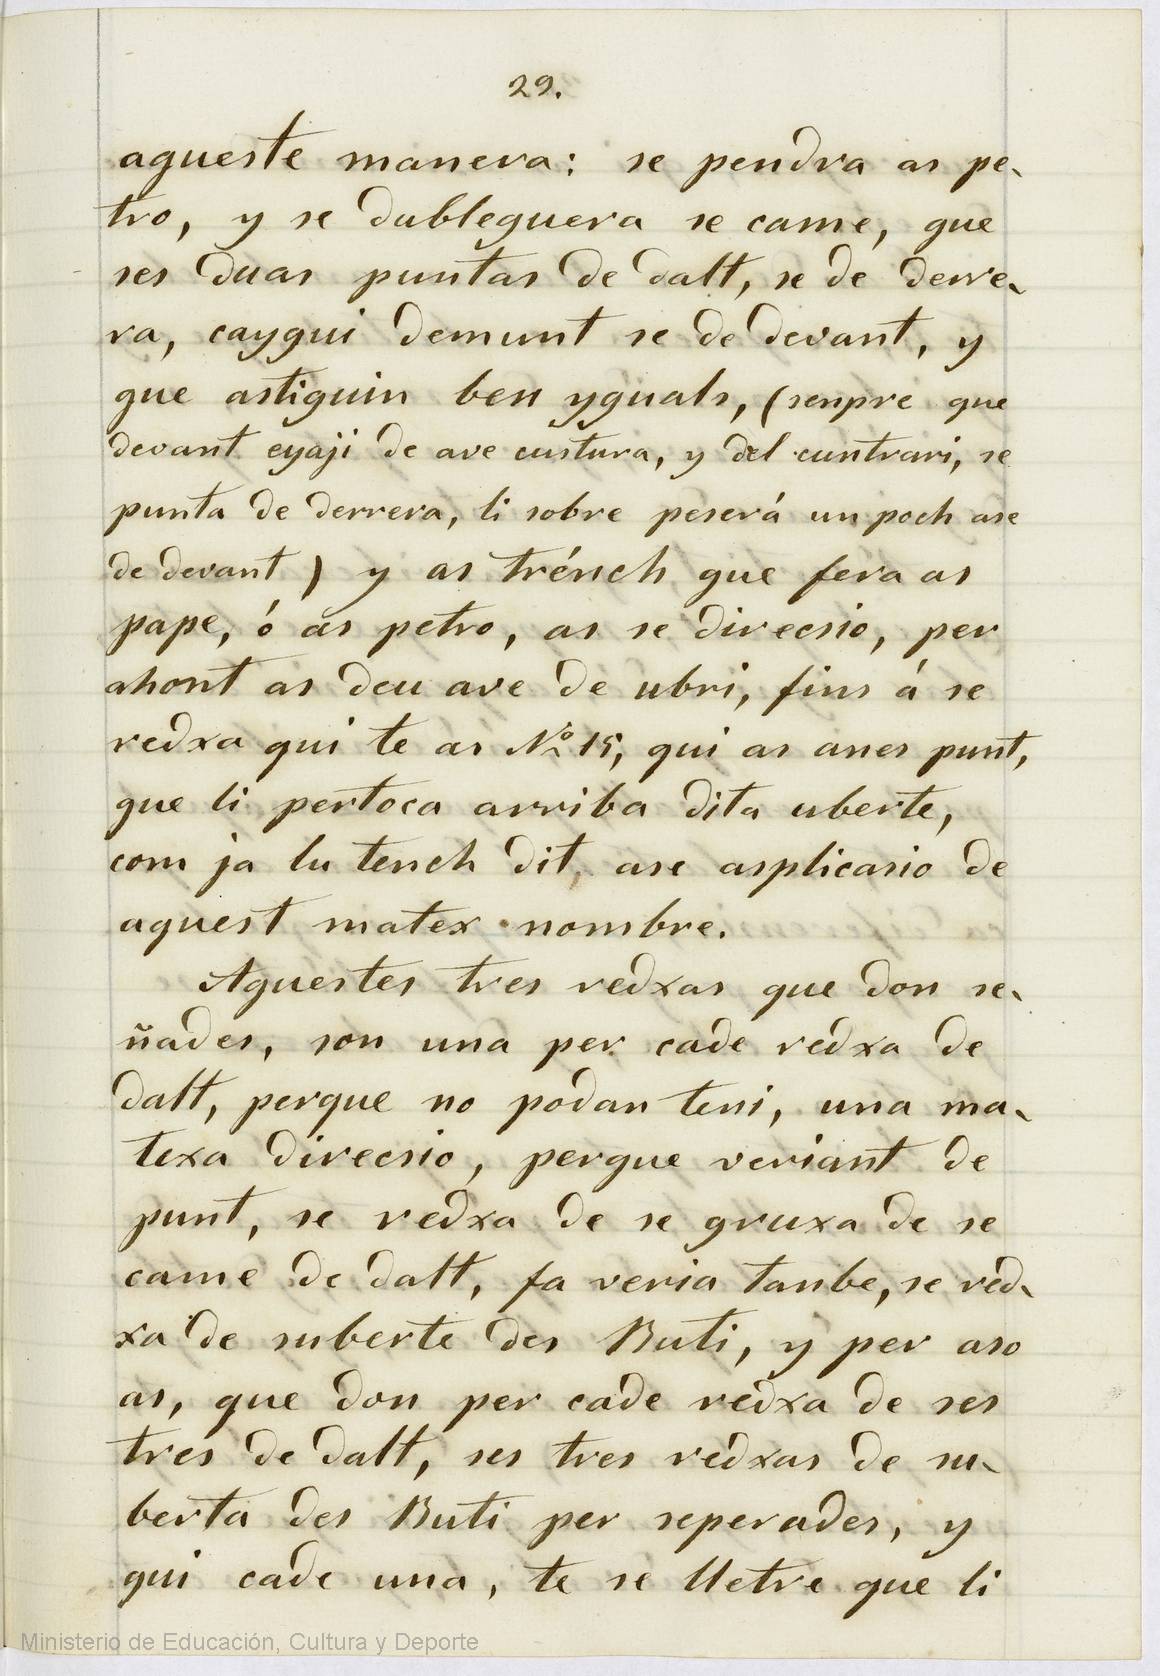 29.
aqueste manera: se pendra as pe-
tro, y se dubleguera se came, que
ses duas puntas de dalt, se de derre-
ra, caygui demunt se de devant, y
que astiguin ben yguals, (senpre que
devant eyaji de ave custura, y del cuntrari, se
punta de derrera, li sobre peserá un poch ase
de devant) y as trénch que fera as
pape, ó as petro, as se direcsio, per
ahont as deu ave de ubri, fins á se
redxa qui te as Nº 15, qui as anes punt,
que li pertoca arriba dita uberte,
com ja lu tench dit, ase asplicasio de
aquest matex nombre.
Aquestes tres redxas que don se-
ñades, son una per cade redxa de
dalt, perque no podan teni, una ma-
texa direcsio, perque veriant de
punt, se redxa de se gruxa de se
came de dalt, fa veria tanbe, se red-
xa de suberte des Buti, y per aso
as, que don per cade redxa de ses
tres de dalt, ses tres redxas de su-
berta des Buti per seperades, y
qui cade una, te se lletre que li
Ministerio de Educación, Cultura y Deporte